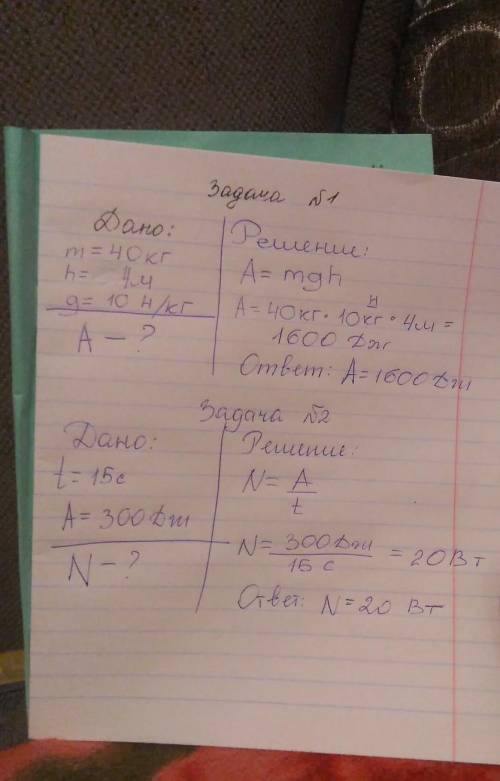 Задача №1
Дано:
m = 40кг
h = 4м
g = 10 Н/кг
A — ?
Решение:
A = mgh
A = 40кг · 10 Н/кг · 4м =
1600 Дж
Ответ: A = 1600 Дж
Задача №2
Дано:
t = 15с
A = 300 Дж
N — ?
Решение:
N = A/t
N = 300 Дж/15 с = 20 Вт
Ответ: N = 20 Вт